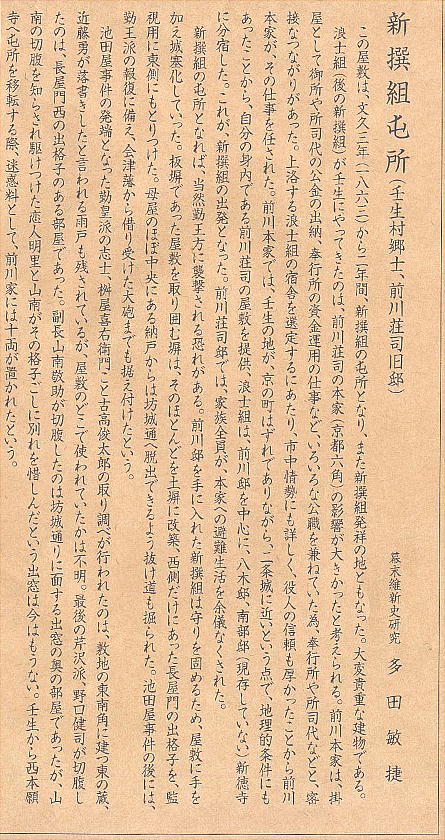 新撰組屯所(壬生村郷士、前川荘司旧邸)
幕末維新史研究 多田敏捷
この屋敷は、文久三年(一八六三)から二年間、新撰組の屯所となり、また新撰組発祥の地ともなった。大変貴重な建物である。
浪士組(後の新撰組)が壬生にやってきたのは、前川荘司の本家(京都六角)の影響が大きかったと考えられる。前川本家は、掛
屋として御所や所司代の公金の出納、奉行所の資金運用の仕事など、いろいろな公職を兼ねていた為、奉行所や所司代などと、密
接なつながりがあった。上洛する浪士組の宿舎を選定するにあたり、市中情勢にも詳しく、役人の信頼も厚かったことから前川
本家が、その仕事を任された。前川本家では、壬生の地が、京の町はずれでありながら、二条城に近い、という点で、地理的条件にも
あったことから、自分の身内である前川荘司の屋敷を提供、浪士組は、前川邸を中心に、八木邸、南部邸(現存していない)新徳寺
に分宿した。これが、新撰組の出発となった。前川荘司邸では、家族全員が、本家への避難生活を余儀なくされた。
新撰組の屯所となれば、当然勤王方に襲撃される恐れがある。前川邸を手に入れた新撰組は守りを固めるため、屋敷に手を
加え城塞化していった。板塀であった屋敷を取り囲む塀は、そのほとんどを土塀に改築、西側だけにあった長屋門の出格子を、監
視用に東側にもとりつけた。母屋のほぼ中央にある納戸からは坊城通へ脱出できるよう抜け道も掘られた。池田屋事件の後には、
勤王派の報復に備え、会津藩から借り受けた大砲までも据え付けたという。
池田屋事件の発端となった勤皇派の志士、桝屋喜右衛門こと古高俊太郎の取り調べが行われたのは、敷地の東南角に建つ東の蔵、
近藤勇が落書きしたと言われる雨戸も残されているが、屋敷のどこで使われていたかは不明。最後の芹沢派、野口健司が切腹し
たのは、長屋門西の出格子のある部屋であった。副長山南敬助が切腹したのは坊城通りに面する出窓の奥の部屋であったが、山
南の切腹を知らされ駆けつけた恋人明里と山南がその格子ごしに別れを惜しんだという出窓は今はもうない。壬生から西本願
寺へ屯所を移転する際、迷惑料として、前川家には十両が置かれたという。